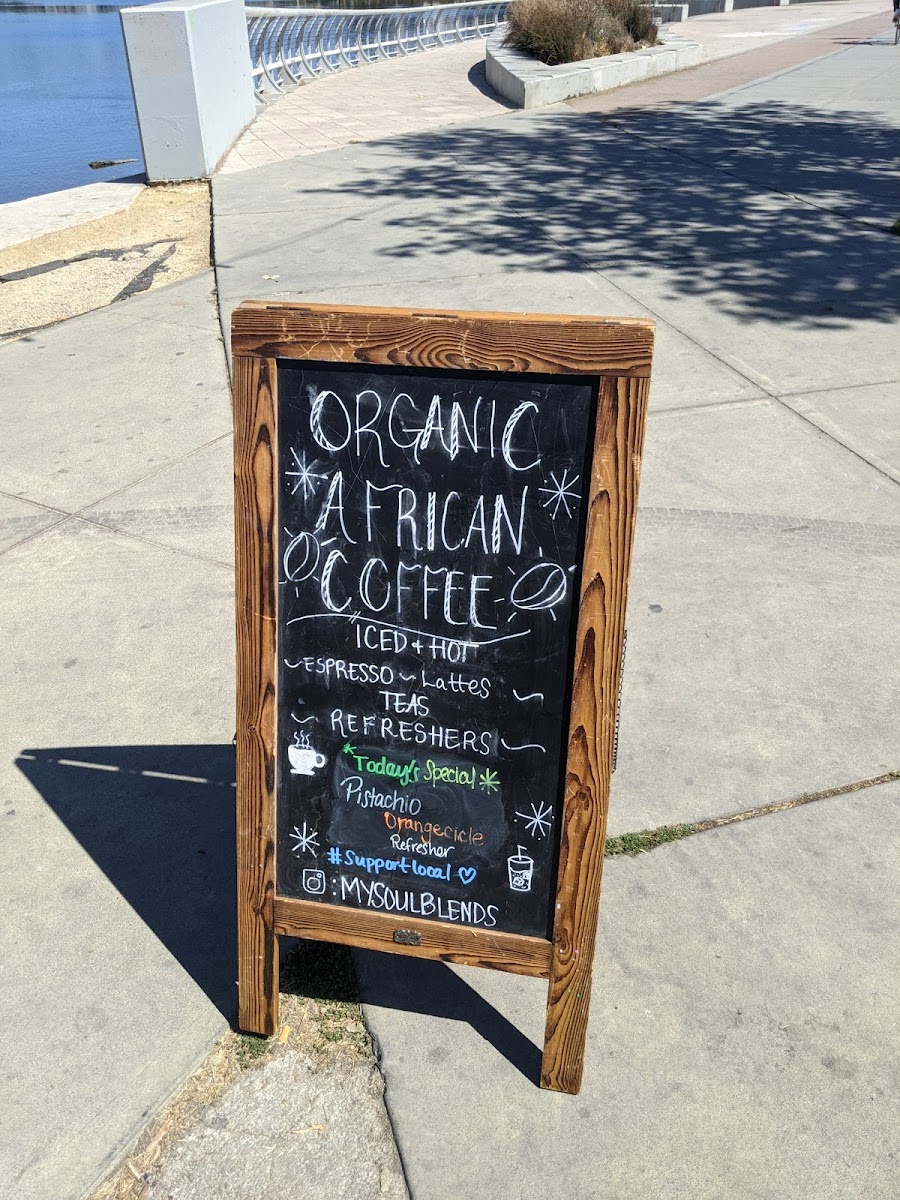 ORGANIC
AFRICAN
COFFEE
ICED + HOT
~ESPRESSO ~ Lattes ~
TEAS
~ REFRESHERS ~
*Today's Special*
Pistachio
Orangecicle
Refresher
#Supportlocal ♡
:MYSOULBLENDS